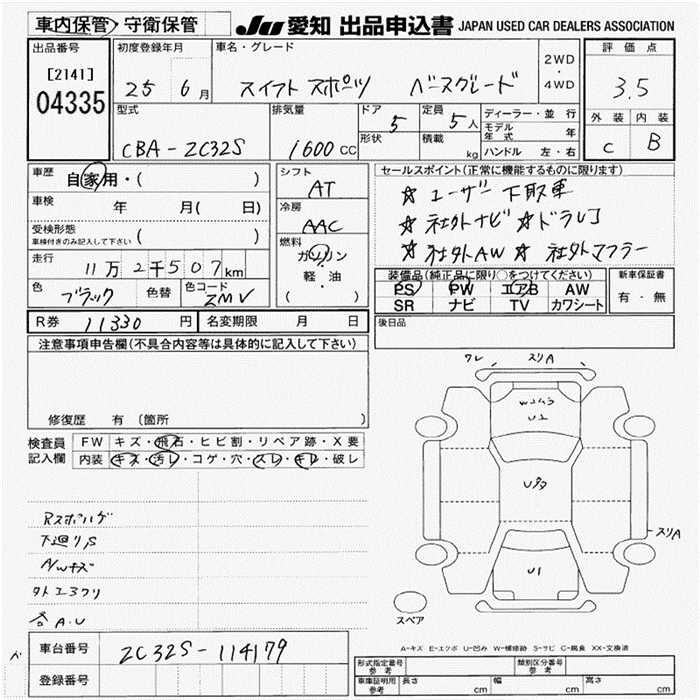 車内保管 守衛保管 JU 愛知 出品申込書 JAPAN USED CAR DEALERS ASSOCIATION
出品番号 初度登録年月 車名・グレード 2WD・4WD 評価点
[2141] 04335 25 6月 スイフト スポーツ ベースグレード 3.5
型式 排気量 ドア 5 定員 5人 ディーラー・並行 外装 内装
CBA-ZC32S 1600 CC 形状 積載 kg モデル年式 年 C B
ハンドル 左・右
車歴 自家用・( ) シフト AT セールスポイント(正常に機能するものに限ります)
車検 年 月( 日) 冷房 AAC ☆ ユーザー下取車
受検形態 車検付きのみ記入して下さい ( ) ☆ 社外ナビ ☆ ドラレコ
走行 11万2千507km 燃料 ガソリン・軽・油 ( ) ☆ 社外AW ☆ 社外マフラー
色 ブラック 色替 色コード ZMV
装備品(純正品に限り○をつけてください) 新車保証書
PS PW エアB AW 有・無
SR ナビ TV カワシート
R券 11330円 名変期限 月 日 後日品
注意事項申告欄(不具合内容等は具体的に記入して下さい)
ワレ スリA
修復歴 有(箇所 )
検査員記入欄 FW キズ・飛石・ヒビ割・リペア跡・X要
内装 キズ・汚レ・コゲ・穴・スレ・キレ・破レ
U2
Rスポハゲ
下廻りS
A/Wキズ
スリA
U1
各A.U
スペア
A-キズ E-エクボ U-凹み W-補修跡 S-サビ C-腐食 XX-交換済
車台番号 ZC32S-114179
登録番号
形式指定番号 参考 類別区分番号 参考
車庫証明用 参考 長さ cm 幅 cm 高さ cm